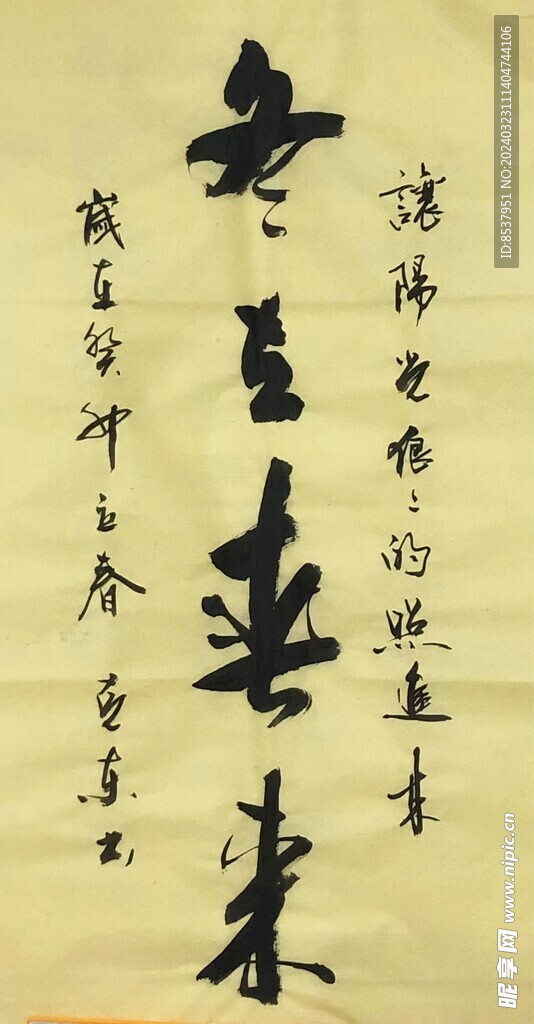 讓陽光狠狠的照進來
冬去春來
歲在癸卯立春 克東书
ID:8537951 NO:20240323111404744106
昵享网 www.nipic.cn